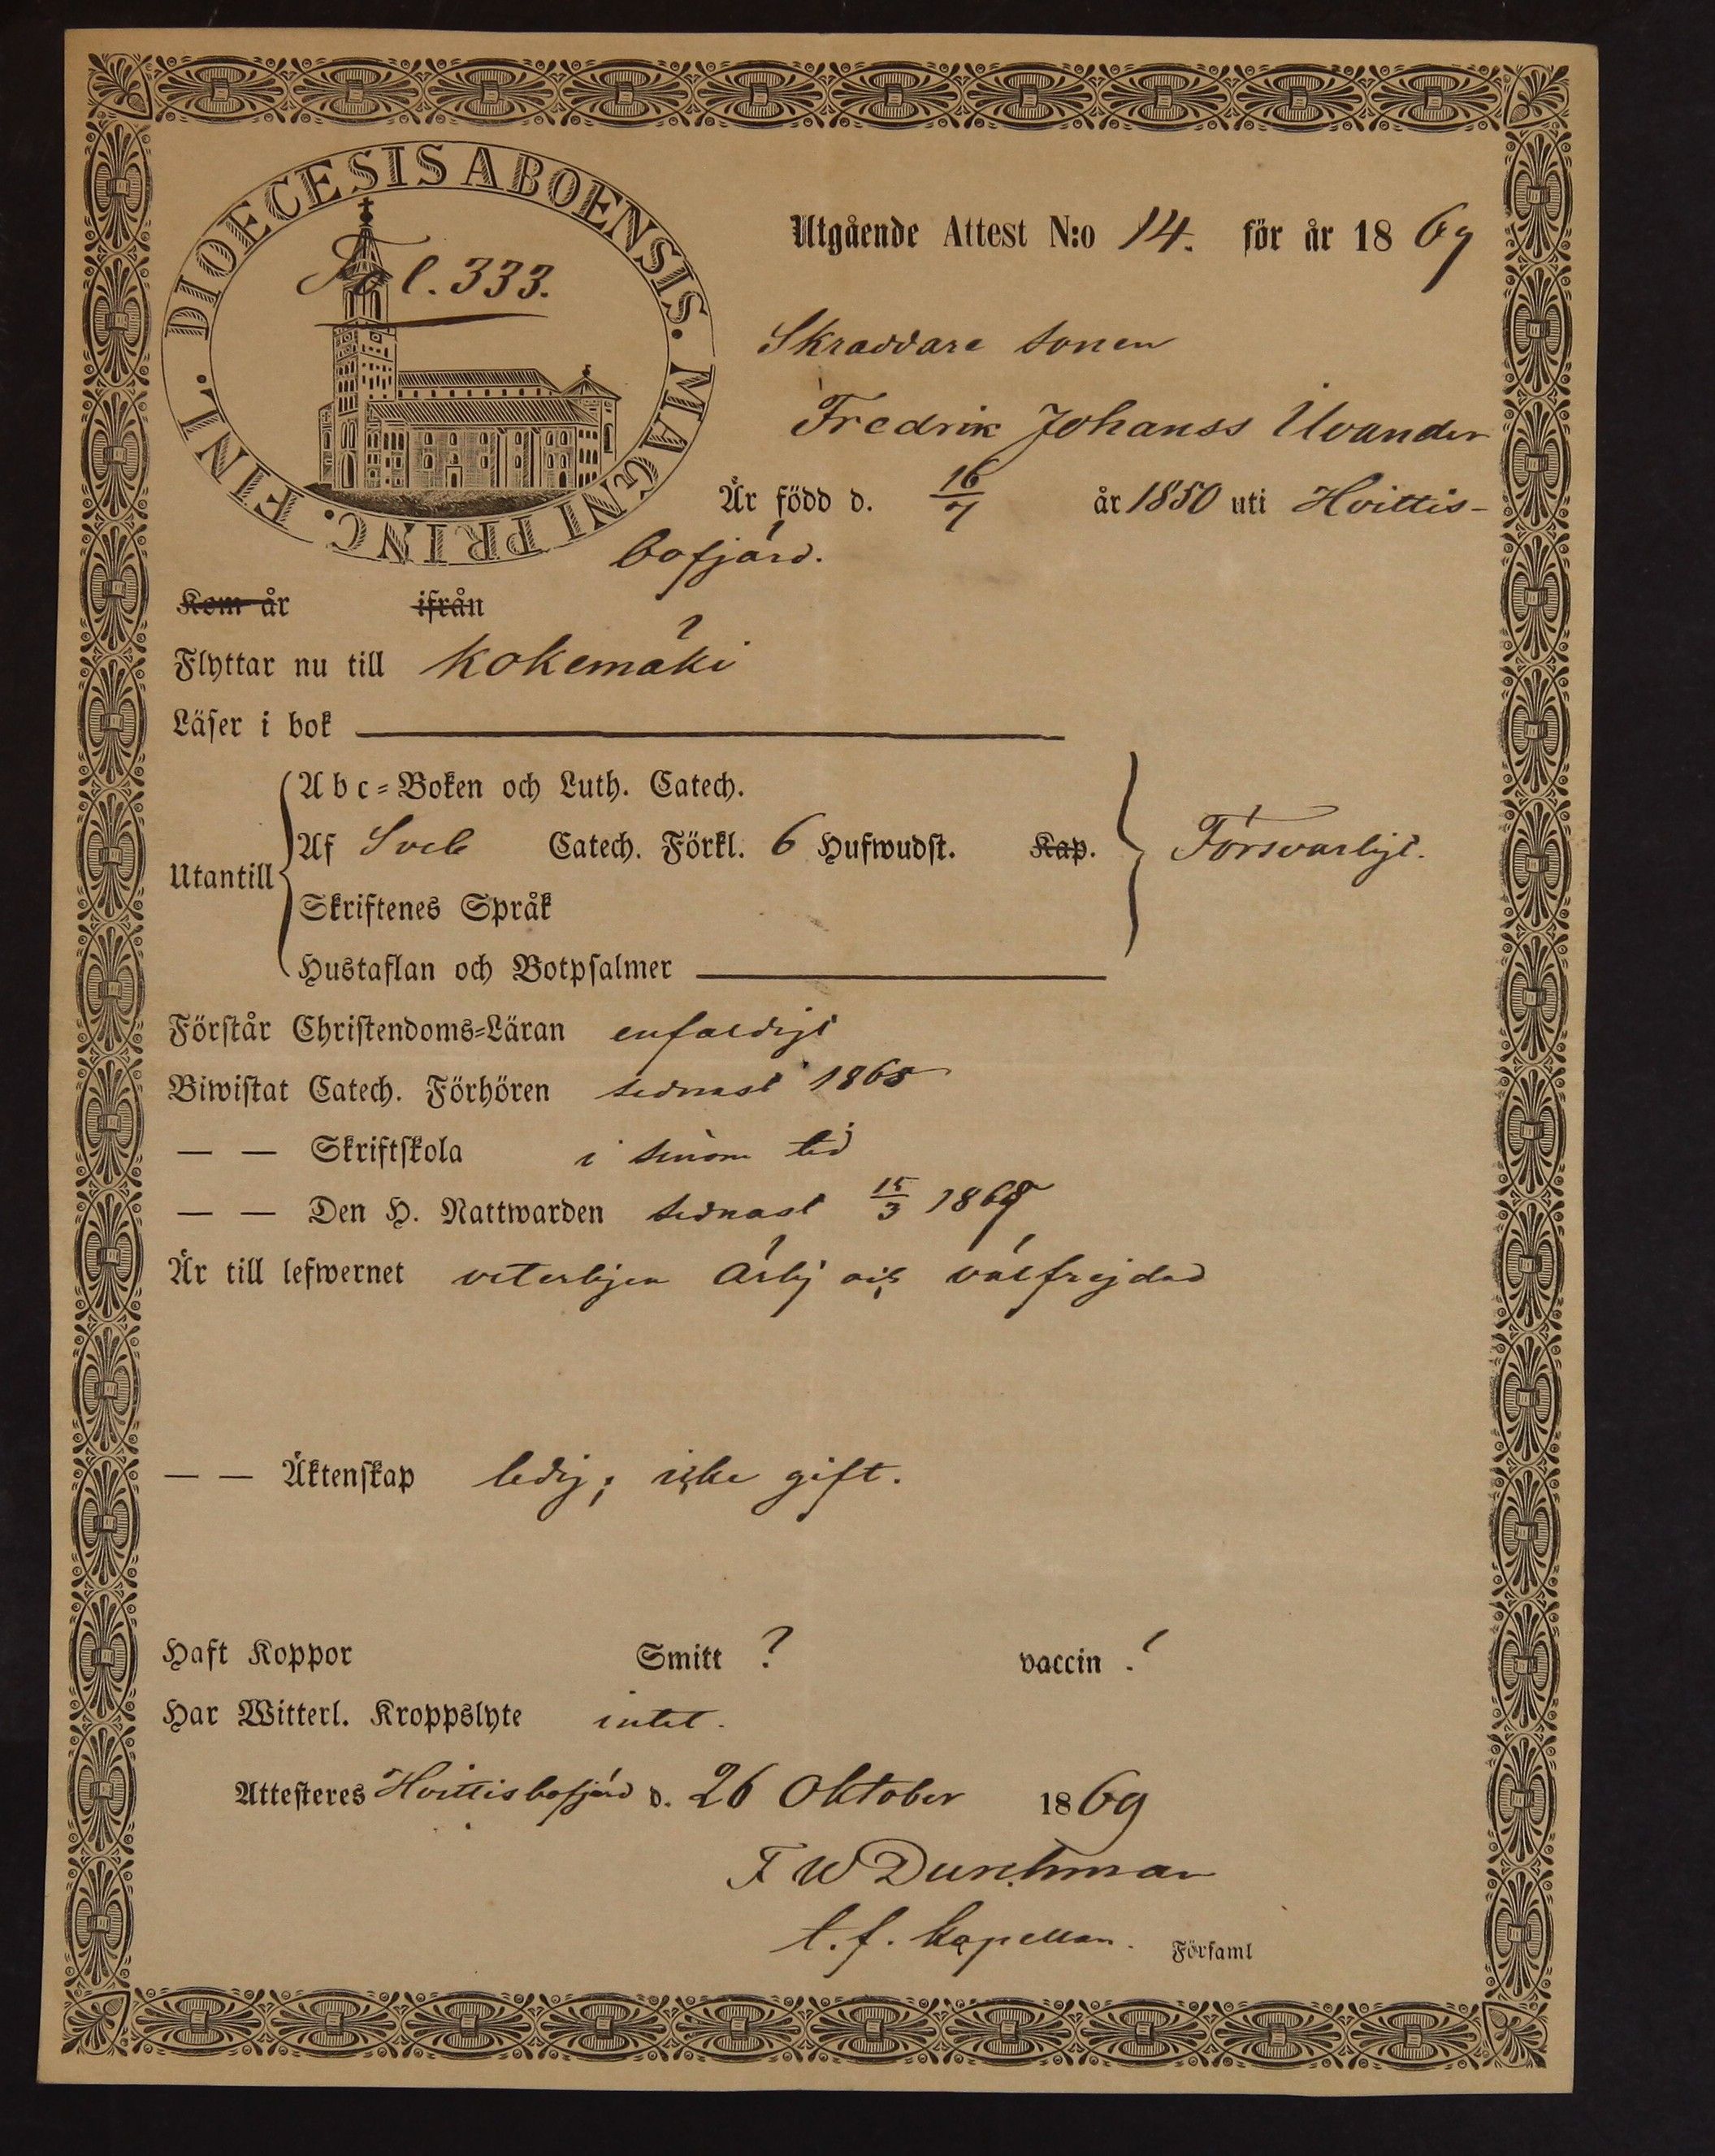 DIOECESIS ABOENSIS. MAGNI PRINC. FINL.
Fol. 333.
Utgående Attest N:o 14. för år 1869
Skraddare sonen
Fredrik Johanss
Är född d. 16/7 år 1850 uti Hvittis-
bofjärd.
Kom år ifrån
Flyttar nu till Kokemäki
Läser i bok
Abc-Boken och Luth. Catech.
Utantill
Af Sveb Catech. Förkl. 6 Hufwudst. Kap. Försvarligt.
Skriftenes Språk
Hustaflan och Botpsalmer
Förstår Christendoms-Läran enfaldigt
Biwistat Catech. Förhören sednast 1868
— — Skriftskola i sinom tid
— — Den H. Nattwarden sednast 15/3 1869
Är till lefwernet veterligen ärlig och välfrejdad
— — Äktenskap ledig; icke gift.
Haft Koppor Smitt ? vaccin .
Har Witterl. Kroppslyte intet.
Attesteres Hvittisbofjärd d. 26 Oktober 1869
F W Durchman
t. f. Kapellan. Församl